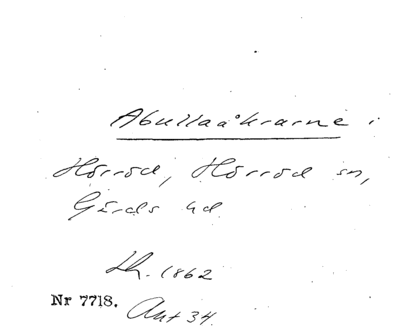 Abullaåkrarne i
Hörröd, Hörröd sn,
Gärds hd
Lh. 1862
Nr 7718.
Akt 34.